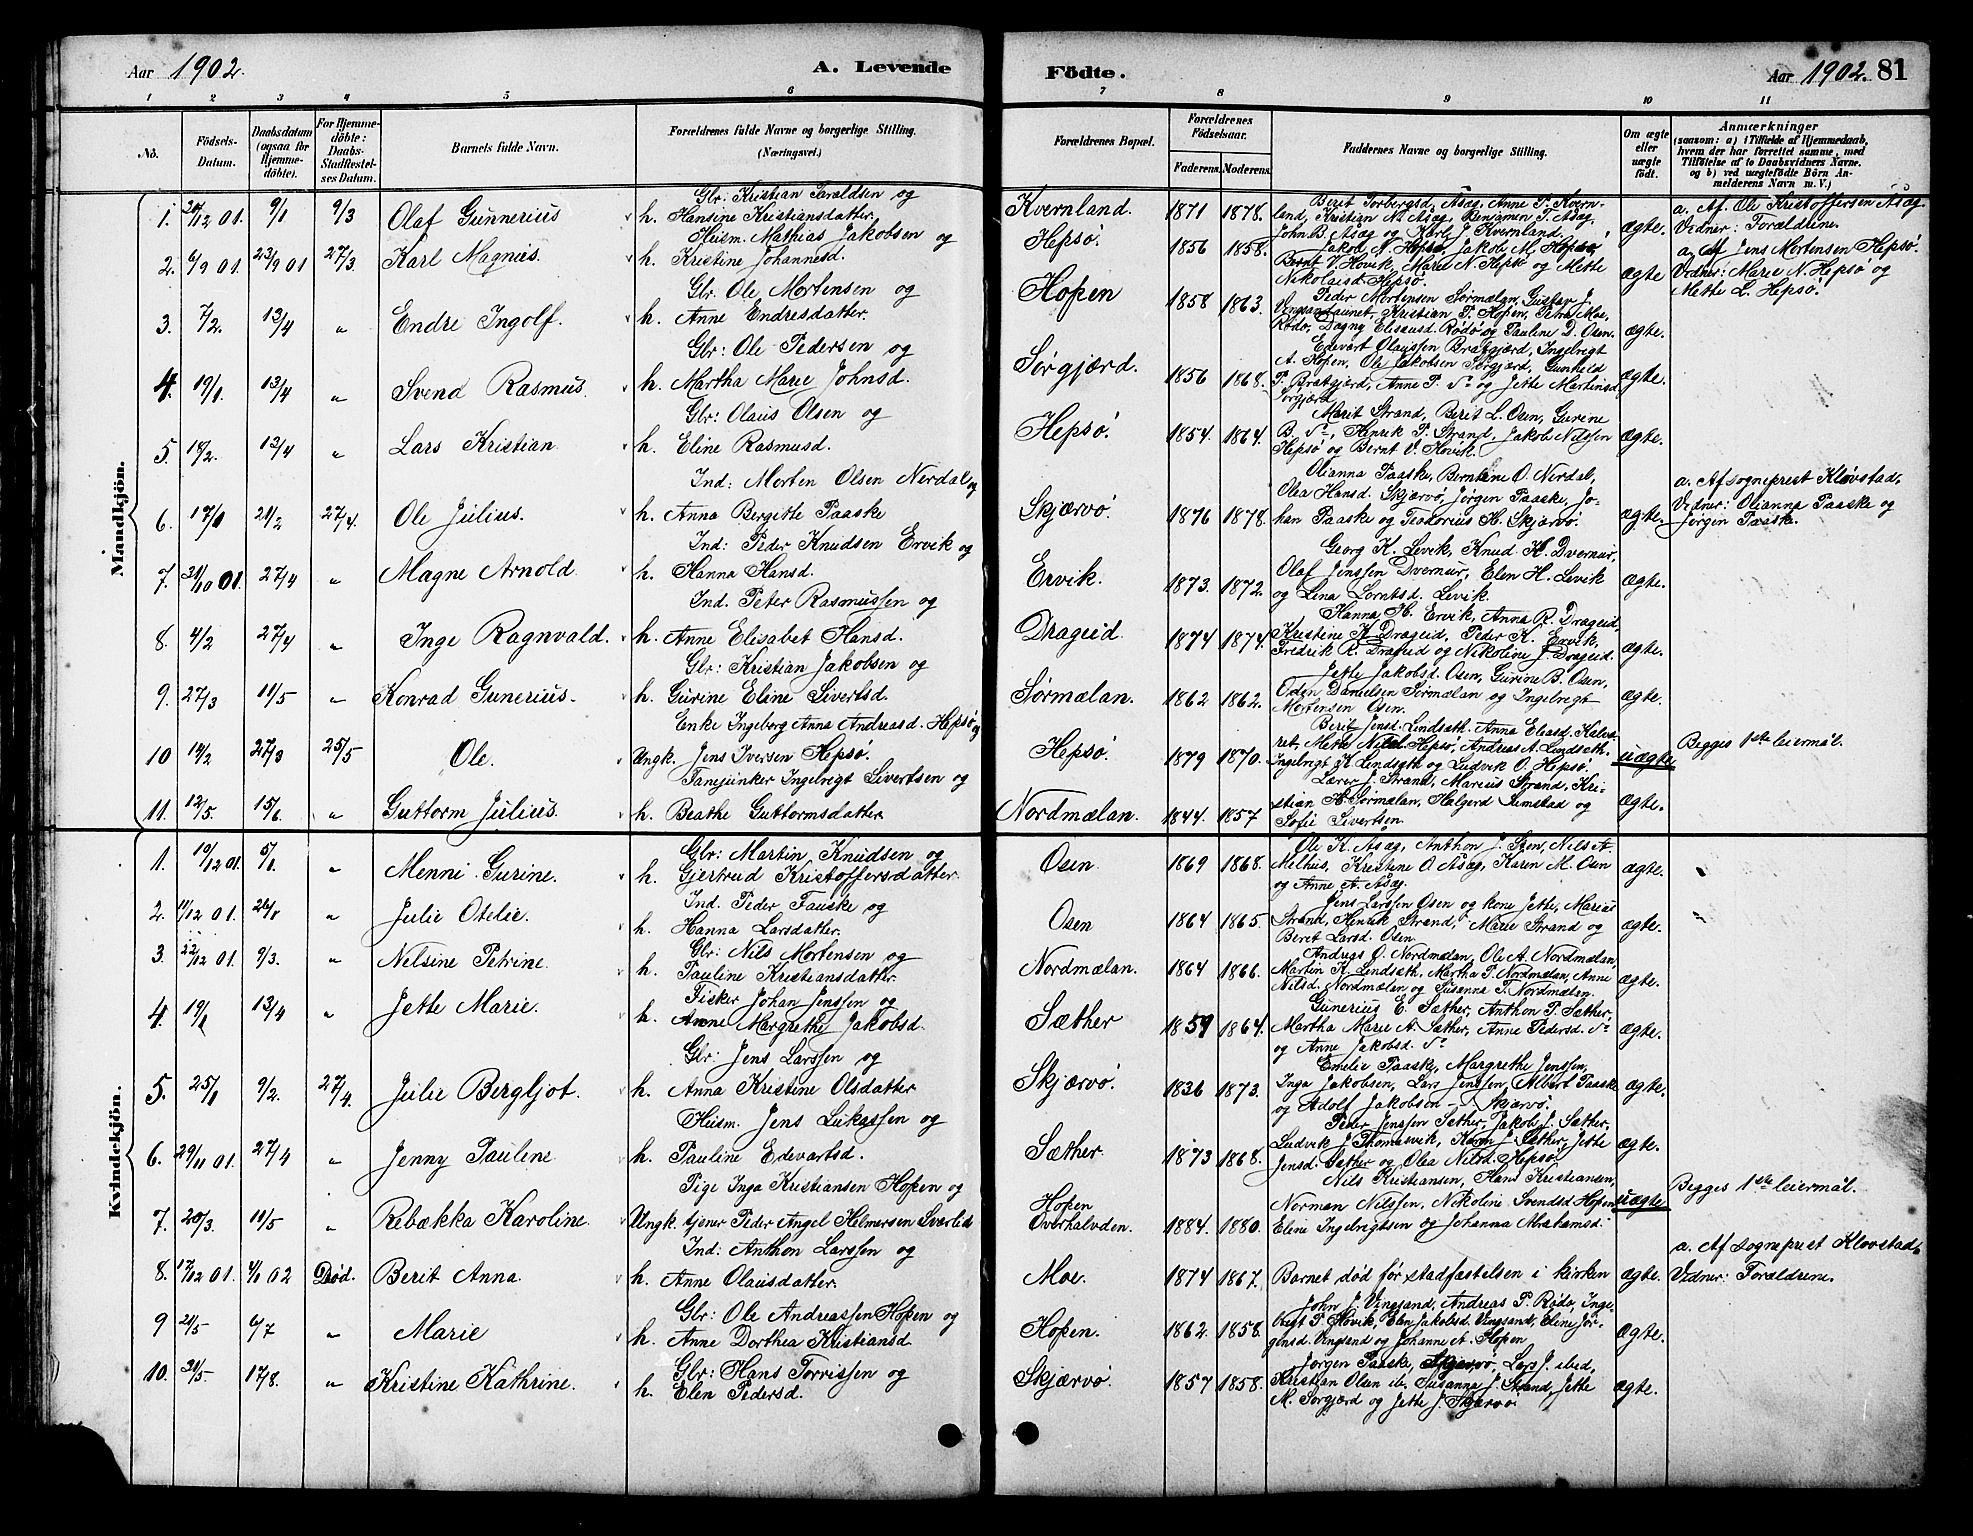 Aar 1902. A. Levende
Födte. Aar 1902. 81
1 2 3 4 5 6 7 8 9 10 11
No.
Födsels-Datum.
Daabsdatum (ogsaa for Hjemme-döbte).
For Hjemme-döbte: Daabs-Stadfæstel-ses Datum.
Barnets fulde Navn.
Forældrenes fulde Navne og borgerlige Stilling.
(Næringsvei.)
Forældrenes Bopæl.
Forældrenes Födselsaar.
Faderens. Moderens.
Faddernes Navne og borgerlige Stilling.
Om ægte eller uægte födt.
Anmærkninger
(saasom: a) i Tilfælde af Hjemmedaab,
hvem der har forrettet samme, med
Tilföielse af to Daabsvidners Navne.
og b) ved uægtefödte Börn An-
melderens Navn m. V.)
Mandkjön.
1. 20/12 01. 9/1 9/3 Olaf Gunnerius
Glr: Kristian Taraldsen og
h. Hansine Kristiansdatter.
Kvernland. 1871 1878.
Berit Torbergsd. Asag, Anne P. Kvern-
land, Kristian N. Asag, Benjamin T. Asag,
John B. Asag og Karl J. Kvernland.
ægte.
a. Af. Ole Kristoffersen Asag.
Vidner: Forældrene.
2. 6/9 01. 23/9 01 27/3. Karl Magnus.
Husm. Mathias Jakobsen og
h. Kristine Johannesd.
Hepsö. 1856 1858.
Jakob N. Hepsø, Jakob M. Hepsø,
Bernt V. Hovik, Marie N. Hepsø og Mette
Nikolaisd. Hepsø.
ægte
a. Af Jens Mortensen Hepsø.
Vidner: Marie N. Hepsø og
Mette L. Hepsø.
3. 7/2. 13/4 " Endre Ingolf.
Glr. Ole Mortensen og
h. Anne Endresdatter.
Hopen 1858 1863.
Peder Mortensen Sørmælan, Gustav J.
Vingsandaunet, Kristian P. Hopen, Petra Moe,
Rødø, Dagny Elisausd. Rødø og Pauline D. Osen.
ægte.
4. 19/1. 13/4 " Svend Rasmus.
Glr: Ole Pedersen og
h. Martha Marie Johnsd.
Sørgjærd. 1856 1868.
Edevart Olaussen Bratgjærd, Ingelregt
A. Hopen, Ole Jakobsen Sørgjærd, Gunhild
P. Bratgjærd, Anne P. do og Jette Martinsd.
Sørgjærd.
ægte.
5. 18/2. 13/4 " Lars Kristian.
Glr: Olaus Olsen og
h. Eline Rasmusd.
Hepsø. 1854. 1864.
Marit Strand, Berit L. Osen, Gurine
B. do, Henrik P. Strand, Jakob Nilssen
Hepsø og Bernt V. Hovik.
ægte.
6. 17/1 21/2 27/4. Ole Julius.
Ind: Morten Olsen Nordal og
h. Anna Bergitte Paaske
Skjærvø. 1876 1878.
Olianna Paaske, Berntine O. Nerdal,
Olea Hansd. Skjærvø, Jørgen Paaske, Jo-
han Paaske og Teodorius H. Skjærvø.
ægte.
a. Af sogneprest Kløvstad,
Vidner: Olianna Paaske og
Jørgen Paaske.
7. 31/10 01. 27/4 " Magne Arnold.
Ind: Peder Knudsen Ervik og
h. Hanna Hansd.
Ervik. 1873. 1872.
Georg K. Levik, Knud H. Dvernur,
Olaf Jenssen Dvernur, Elen H. Levik
og Lina Lorntsd. Levik.
ægte.
8. 4/2 27/4 " Inge Ragnvald.
Ind. Peter Rasmussen og
h. Anne Elisabet Hansd.
Drageid. 1874 1874.
Hanna H. Ervik, Anna R. Drageid,
Kristine H. Drageid, Peder K. Ervik,
Fredrik R. Drageid og Nikoline J. Drageid.
ægte.
9. 27/3 11/5 " Konrad Gunerius.
Glr: Kristian Jakobsen og
h. Gurine Eline Sivertsd.
Sørmælan. 1862 1862.
Jette Jakobsd. Osen, Gurine B. Osen,
Oden Danielsen Sørmælan og Ingelregt
Mortensen Osen.
ægte.
10 14/2 27/3 25/5 Ole.
Enke Ingeborg Anna Andreasd. Hepsø og
Ungk. Jens Iversen Hepsø.
Hepsø. 1879 1870.
Berit Jensd. Lindsæth, Anna Eliasd.
Mette Nilsd. Hepsø, Andreas A. Lindsæth,
Ingelregt K. Lindsæth og Ludvik O. Hepsø
uægte
Begges 1ste leiermål.
11. 12/5. 15/6. " Guttorm Julius.
Ingelregt Sivertsen og
h. Beathe Guttormsdatter.
Nordmælan. 1844. 1857
Lærer J. Strand, Marius Strand, Kri-
stian H. Sørmælan, Halgerd Sumstad og
Sofie Sivertsen.
ægte.
Kvindekjön.
1. 19/12 01. 5/1 " Menni Gurine.
Glr: Martin Knudsen og
h. Gjertrud Kristoffersdatter.
Osen. 1869 1868.
Ole K. Asag, Anthon J. Sten, Nils A.
Melhus, Kristine O. Asag, Karen M. Osen
og Anne A. Asag.
ægte.
2. 11/12 01. 26/1 " Julie Otelie.
Ind. Peder Fauske og
h. Hanna Larsdatter.
Osen 1864 1865.
Jens Larssen Osen og kone Jette, Marius
Strand, Henrik Strand, Marie Strand og
Beret Larsd. Osen.
ægte.
3. 22/12 01. 9/3. " Nelsine Petrine.
Glr: Nils Mortensen og
h. Pauline Kristiansdatter.
Nordmælan. 1864 1866.
Andrias O. Nordmælan, Ole A. Nordmælan,
Martin K. Lindsæth, Martha P. Nordmælan, Anne
Nilsd. Nordmælan og Susanna T. Nordmælan.
ægte.
4. 19/1 13/4 " Jette Marie.
Fisker Johan Jenssen og
h. Anne Margrethe Jakobsd.
Sæther 1859 1864.
Gunerius E. Sæther, Anthon P. Sæther,
Martha Marie A. Sæther, Anne Pedersd. do
og Anne Jakobsd. do
ægte.
5. 25/1 9/2. 27/4. Julie Bergljot.
Glr: Jens Larssen og
h. Anna Kristine Olsdatter
Skjærvø. 1836 1873.
Emelie Paaske, Margrethe Jenssen,
Inga Jakobsen, Lars Jenssen, Albert Paaske
og Adolf Jakobsen – Skjærvø.
ægte.
6. 29/11 01. 27/4 " Jenny Pauline
Husm. Jens Lukassen og
h. Pauline Edevartsd.
Sæther. 1873 1868.
Peder Jenssen Sæther, Jakob J. Sæther,
Ludvik J. Thomasvik, Karen J. Sæther, Jette
Jensd. Sæther og Olea Nilsd. Hepsø.
ægte.
7. 20/3. 11/5 " Rebækka Karoline.
Pige Inga Kristiansen Hopen og
Ungk. tjener Peder Angel Helmersen Sværlid
Hopen
Overhalvden. 1884. 1880.
Nils Kristiansen, Hans Kristiansen,
Norman Nilssen, Nikoline Svendsd. Hopen
Eline Ingelregtsen og Johanna Abrahamsd.
uægte
Begges 1ste leiermål.
8. 17/12 01. 4/1 02 Død. Berit Anna.
Ind: Anthon Larssen og
h. Anne Olausdatter.
Moe. 1874 1867.
Barnet død før stadfæstelsen i kirken
ægte.
a. Af sogneprest Kløvstad,
Vidner: Forældrene.
9 21/5 6/7 " Marie
Glr: Ole Andreassen Hopen og
h. Anne Dorthea Kristiansd.
Hopen. 1862. 1858.
John J. Vingsand, Andreas P. Rødø, Inge-
bregt P. Hovik, Elen Jakobsd. Vingsand, Eline Jør-
gensd. Vingsand og Johanne A. Hopen
ægte.
10. 31/5. 17/8. " Kristine Kathrine.
Glr: Hans Torrissen og
h. Elen Pedersd.
Skjærvø. 1857 1858.
Jørgen Paaske, Skjærvø, Lars J. ibid,
Kristian Olsen ib. Susanna J. Strand, Jette
M. Sørgjærd og Jette J. Skjærvø.
ægte.